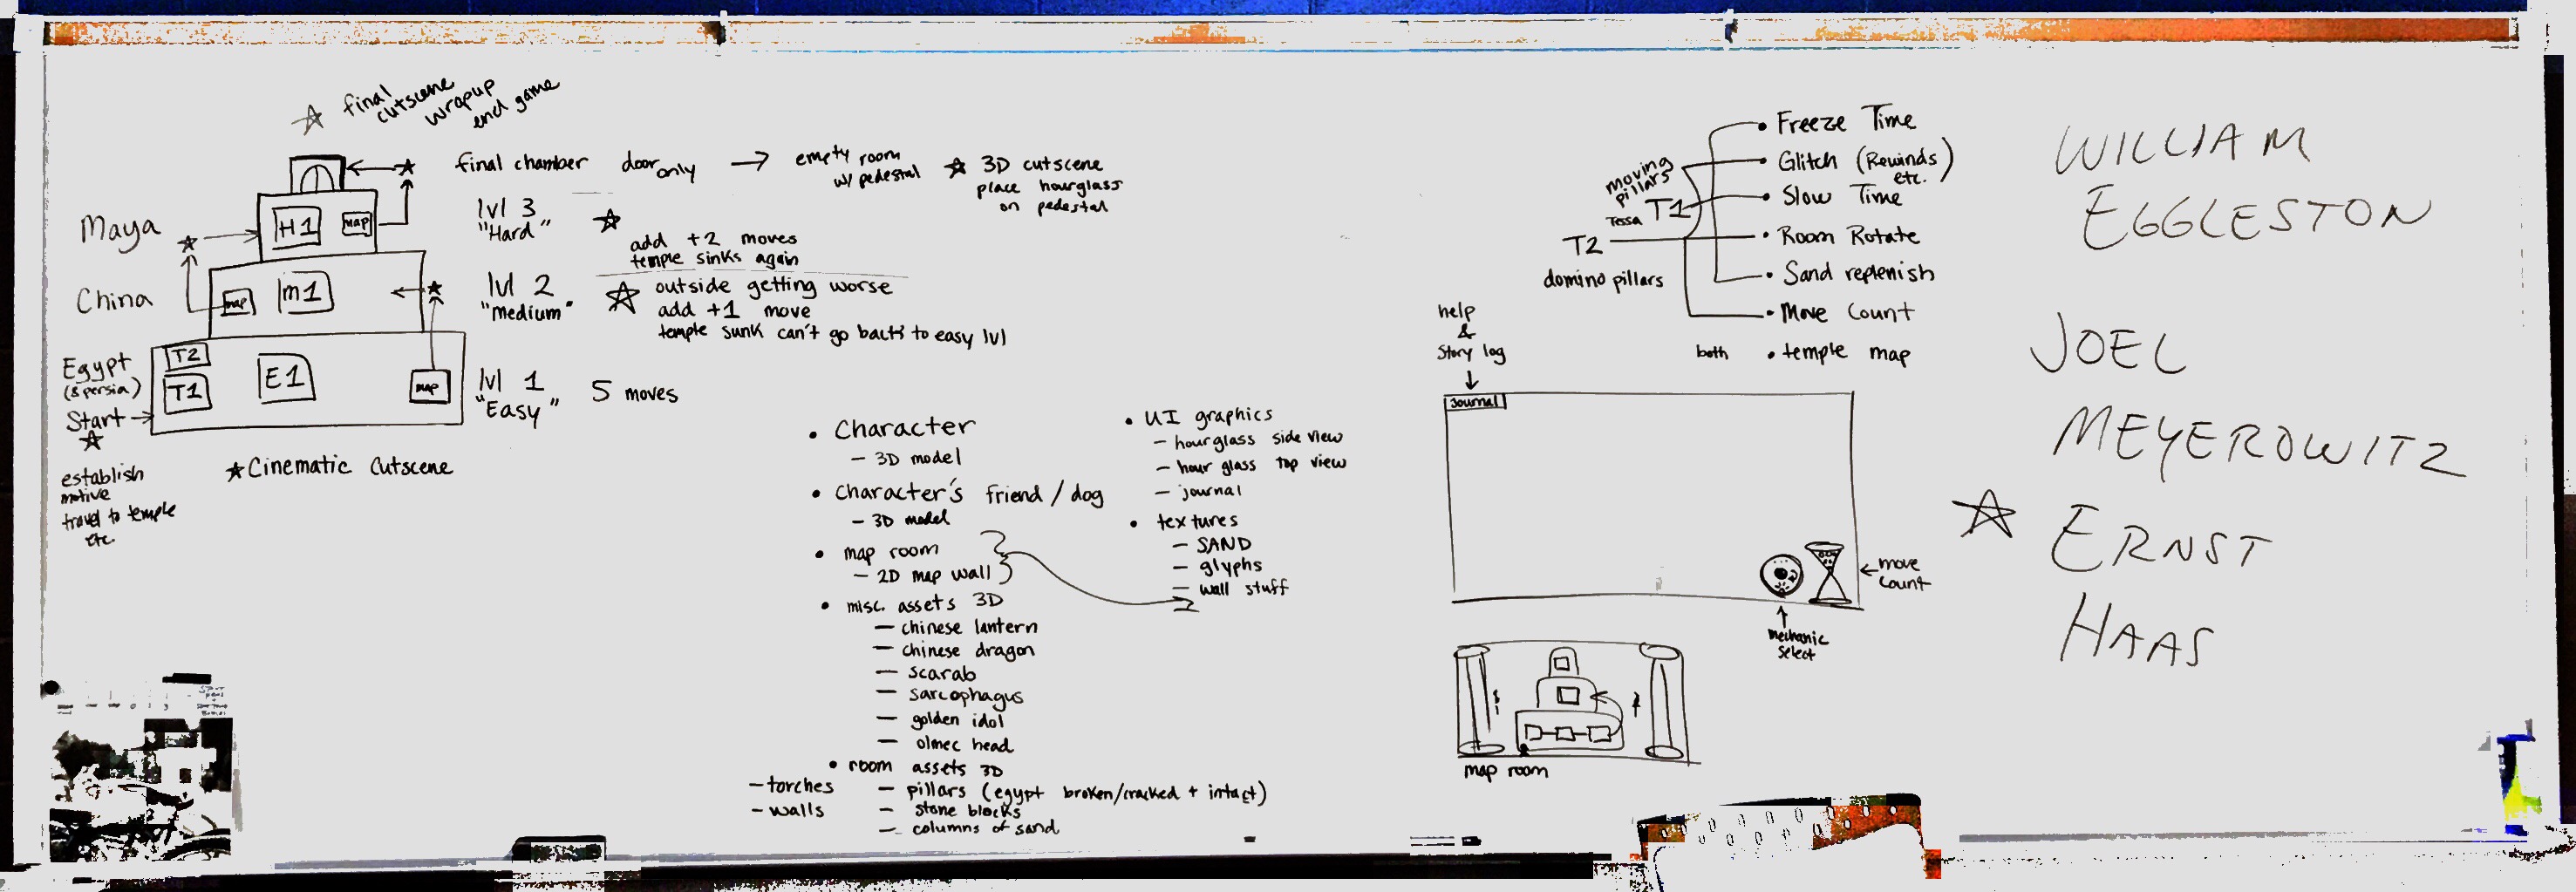 ☆ final
cutscene
wrapup
end game
final chamber door only → empty room
w/ pedestal
★ 3D cutscene
place hourglass
on pedestal
Maya
H1
map
lvl 3
"Hard"
add +2 moves
temple sinks again
China
map
m1
lvl 2
"Medium"
outside getting worse
add +1 move
temple sunk can't go back to easy lvl
Egypt
(& persia)
Start →
T2
T1
E1
map
lvl 1
"Easy"
5 moves
establish
motive
travel to temple
etc.
★ Cinematic Cutscene
• Character
– 3D model
• Character's friend / dog
– 3D model
• map room
– 2D map wall
• misc. assets 3D
– chinese lantern
– chinese dragon
– scarab
– sarcophagus
– golden idol
– olmec head
• room assets 3D
– torches
– walls
– pillars (egypt broken/cracked + intact)
– stone blocks
– columns of sand
• UI graphics
– hourglass side view
– hour glass top view
– journal
• textures
– SAND
– glyphs
– wall stuff
moving
pillars
Tessa T1
T2
domino pillars
• Freeze Time
• Glitch (Rewinds)
etc.
• Slow Time
• Room Rotate
• Sand replenish
• Move Count
both • temple map
help
&
Story log
Journal
← move
count
mechanic
select
map room
WILLIAM
EGGLESTON
JOEL
MEYEROWITZ
☆ ERNST
HAAS